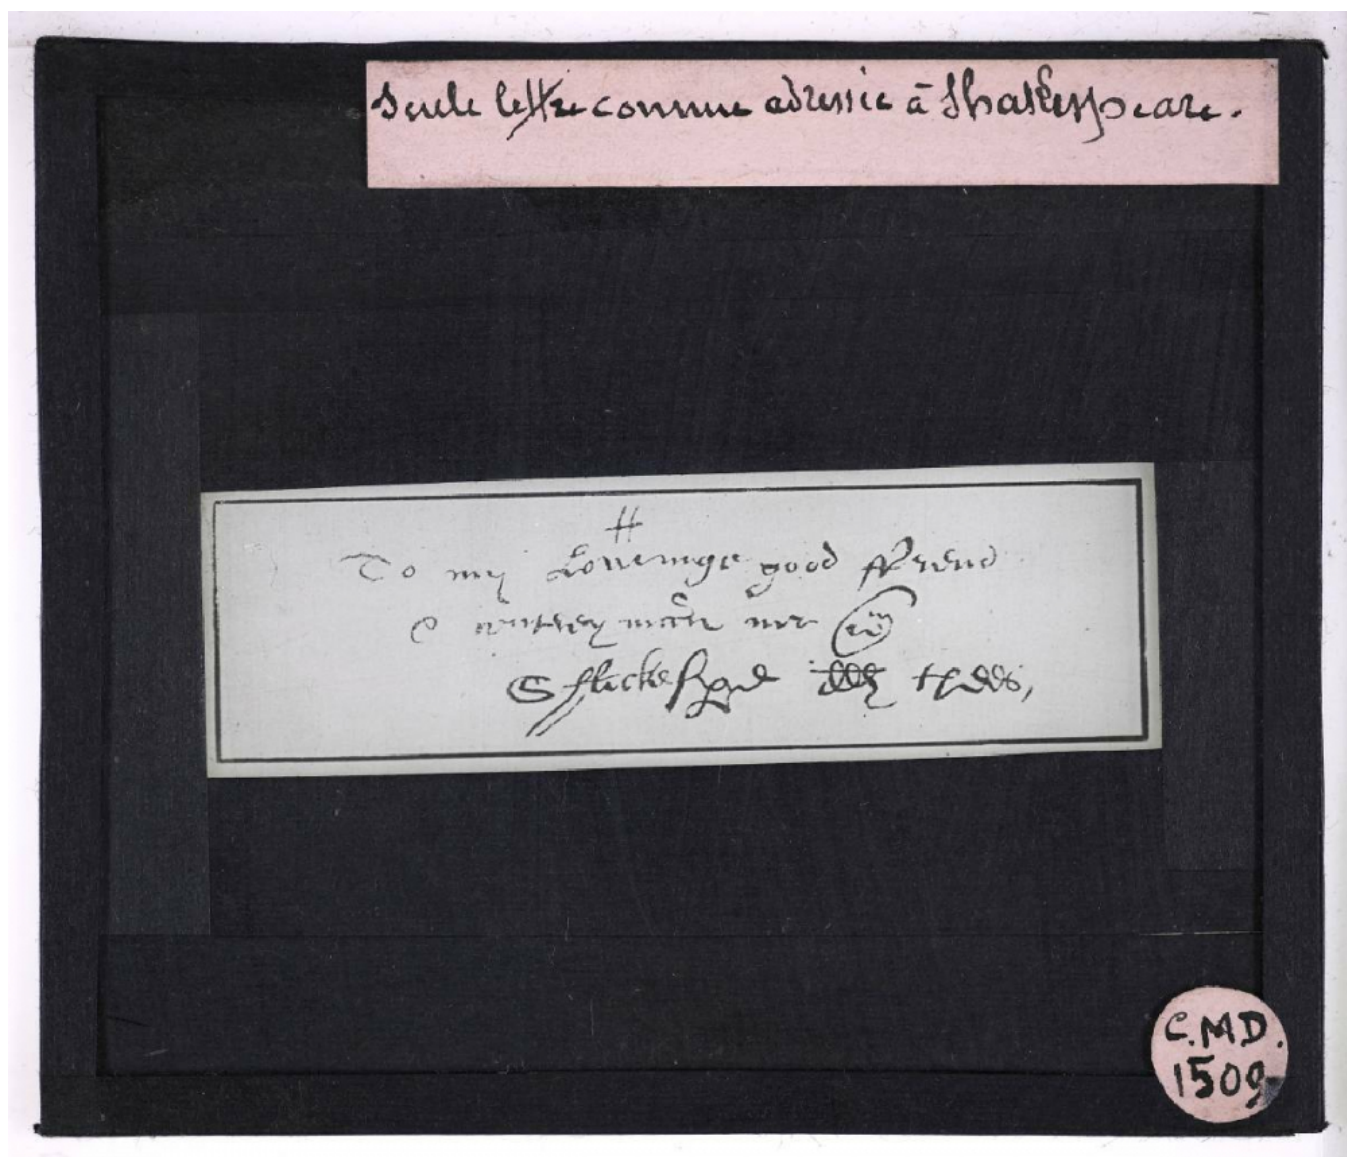 Seule lettre connue adressée à Shakespeare.
To my Loveinge good ffrend
contreymann mr wm
Shackespe thees,
C.M.D.
1509